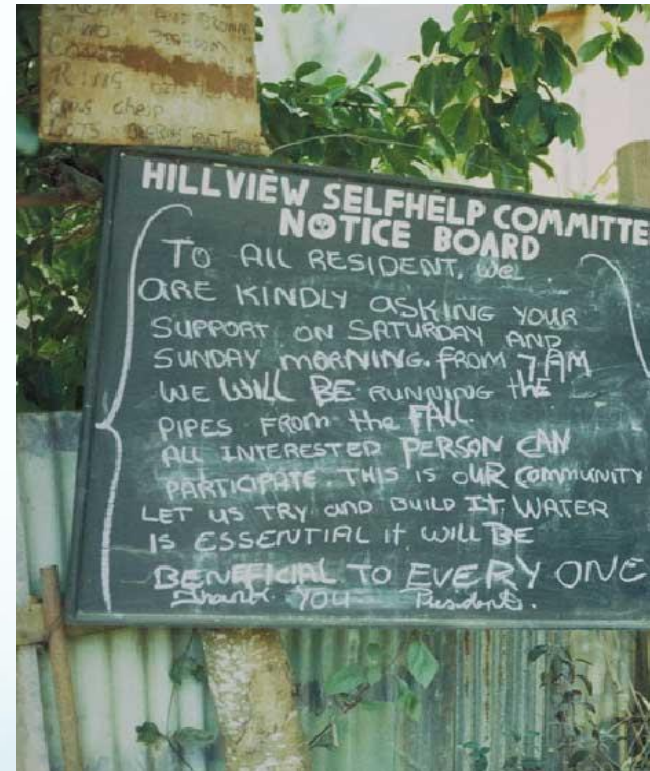 AND BROWN
TWO BEDROOM
cheap
HILLVIEW SELFHELP COMMITTE
NOTICE BOARD
TO All RESIDENT, We
ARE KINDLY ASKING YOUR
SUPPORT ON SATURDAY AND
SUNDAY MORNING. FROM 7 AM
WE WILL BE RUNNING the
PIPES FROM the FALL.
ALL INTERESTED PERSON CAN
PARTICIPATE. THIS IS OUR COMMUNITY
LET US TRY and BUILD IT, WATER
IS ESSENTIAL it WILL BE
BENEFICIAL TO EVERY ONE
Thank YOU President.